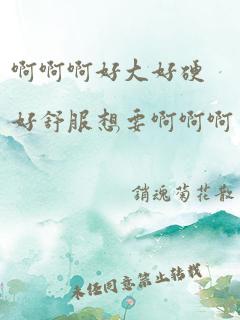 啊啊啊好大好硬
好舒服想要啊啊啊
銷魂菊花散
未经同意禁止转载